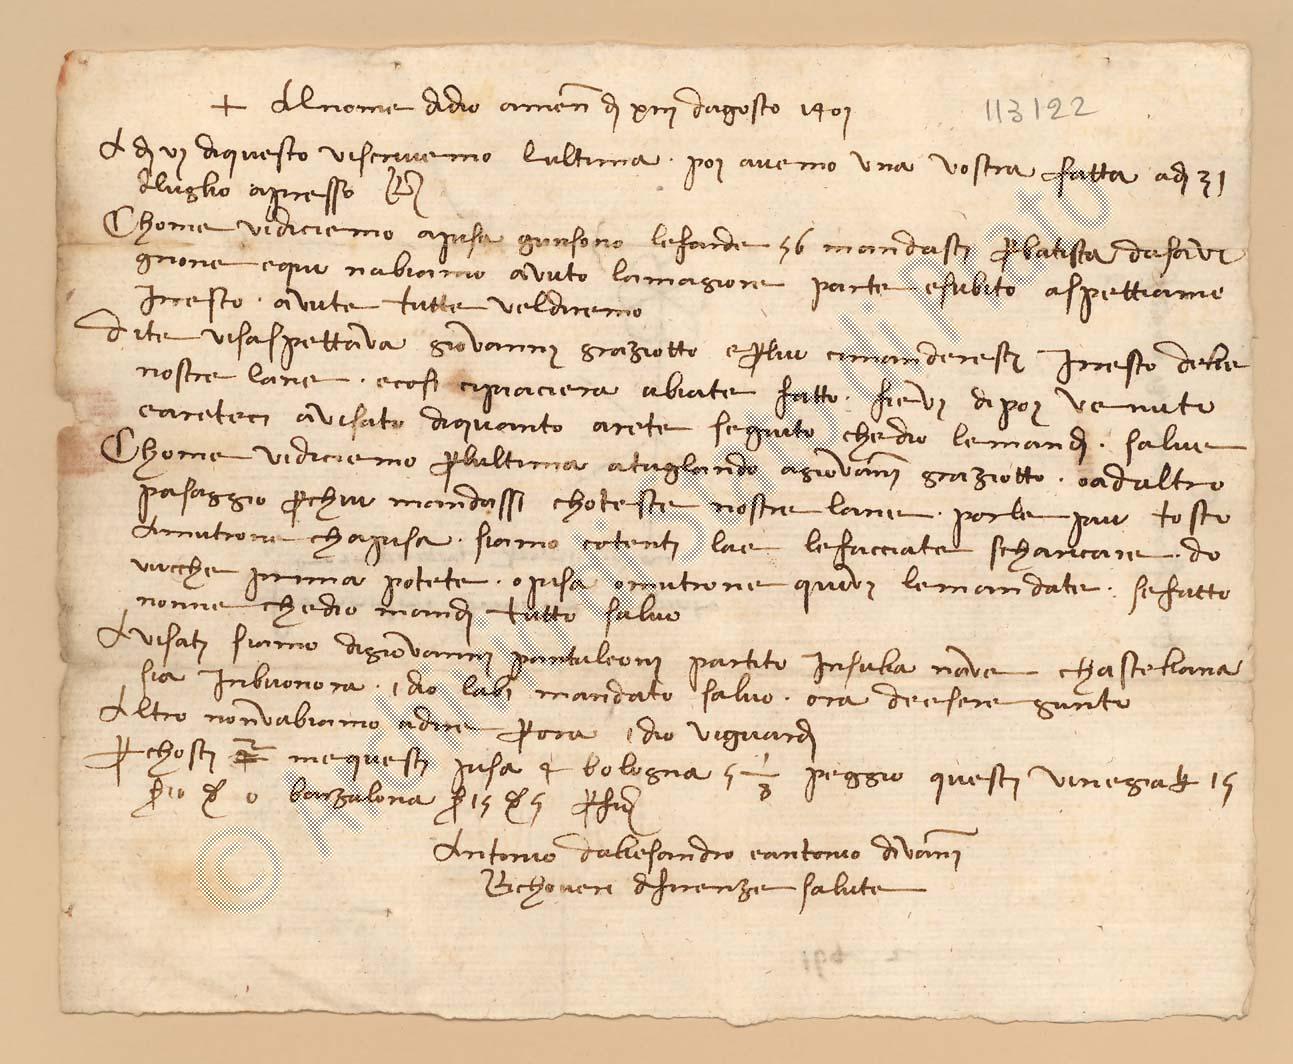 + Al nome didio amen dì xiii dagosto 1401
113122
A dì vi di questo vi scrivemo lultima . poi avemo una vostra fatta adì 31
di luglio apresso R
Chome vi diciemo a pisa giunsono le farde 56 mandasti per batista da savi
gnone e qui nabiamo avuto la magiore parte e subito aspettiamo
il resto . avute tutte vel diremo
Dite vi saspettava giovanni graziotto e per lui ci manderesti il resto delle
nostre lane . e cosi ci piaciera abiate fatto . sievi di poi venuto
e areteci avisato di quanto arete seguito che dio le mandi . salve
Chome vi diciemo per lultima a tuglando a giovanni graziotto . o ad altro
pasaggio per chui mandassi choteste nostre lane . per le piu tosto
a mutrone cha pisa . siamo chotenti la e le facciate scharicare . do
vucche prima potete . o pisa o mutrone quivi le mandate . se fatto
nonne che dio mandi tutto salvo
Avisati siamo di giovanni pantaleoni partito in sulla nave chastellana
sia in buonora . idio labi mandato salvo . ora de esere giunto
Altro non vabiamo a dire per ora idio vi guardi
Per chosti me questi pisa bologna 5 1/3 peggio questi vinegia 15
10 0 barzalona 15 5 per fio
Antonio dallesandro e antonio di vanni
Richoveri di firenze salute